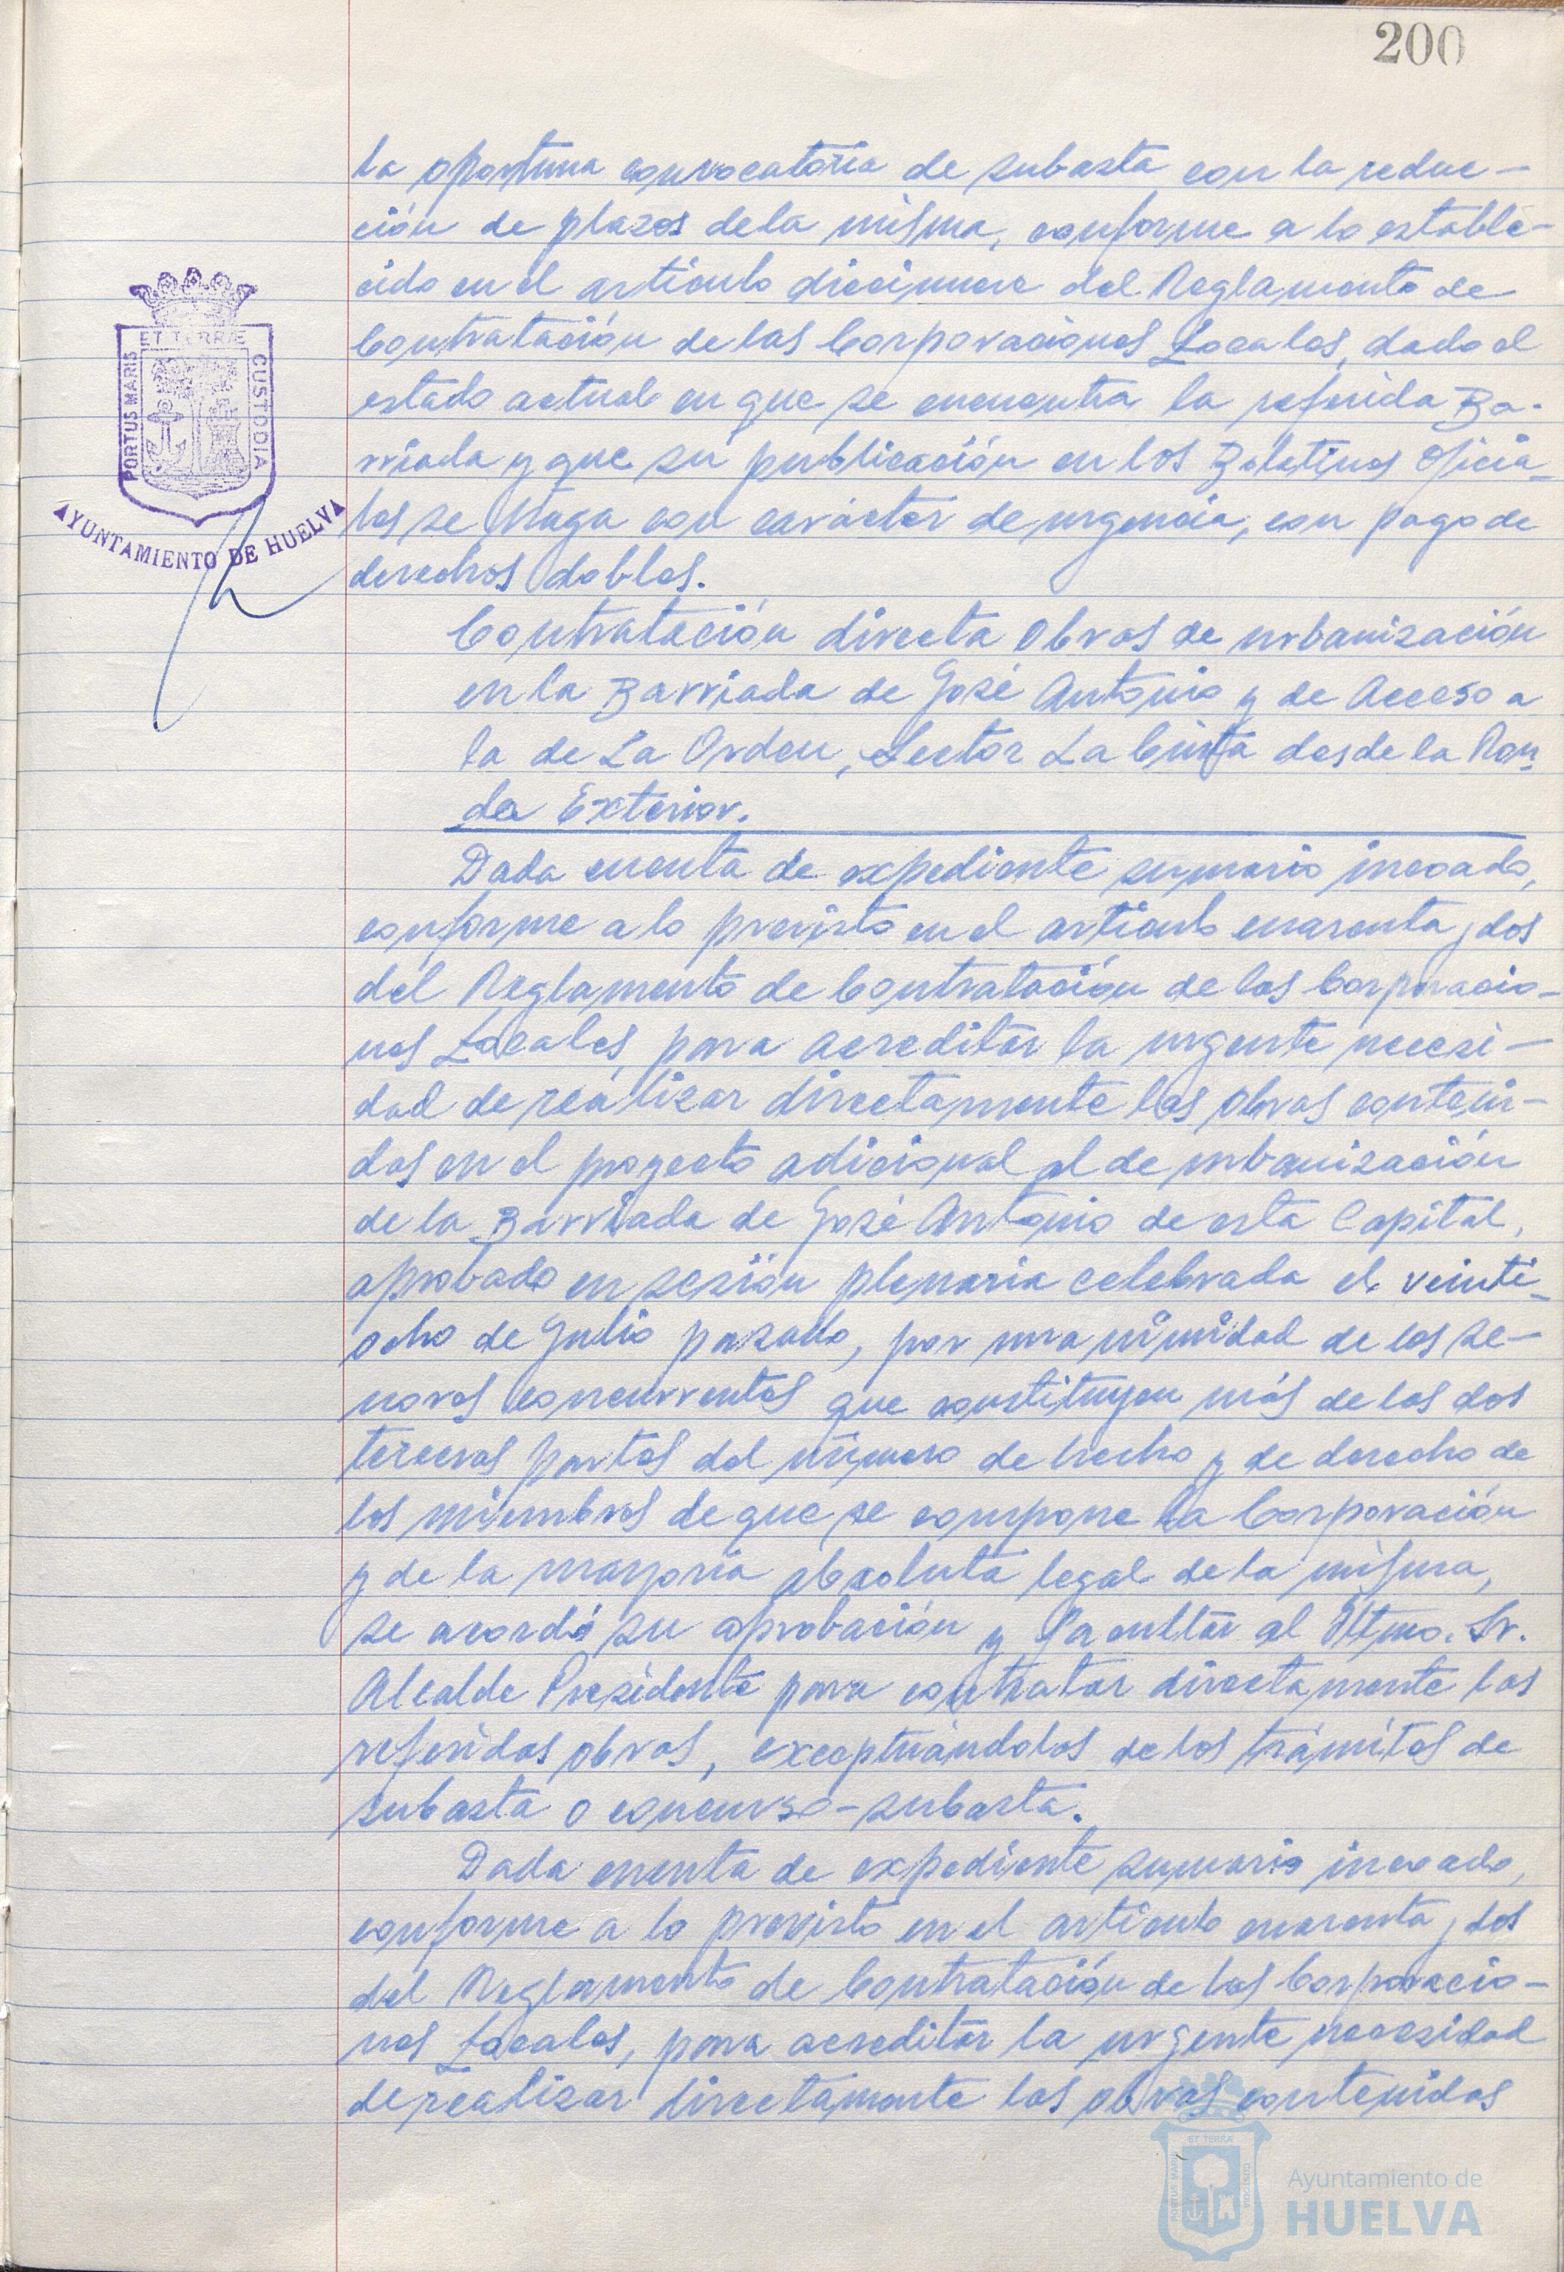 200
la oportuna convocatoria de subasta con la reduc-
ción de plazos de la misma, conforme a lo estable-
cido en el artículo diecinueve del Reglamento de
Contratación de las Corporaciones Locales, dado el
estado actual en que se encuentra la referida Ba-
rriada y que su publicación en los Boletines Oficia-
les se haga con carácter de urgencia, con pago de
derechos dobles.
ET TERRÆ
PORTUS MARIS
CUSTODIA
AYUNTAMIENTO DE HUELVA
Contratación directa Obras de urbanización
en la Barriada de José Antonio y de Acceso a
la de La Orden, Sector La Cinta desde la Ron-
da Exterior.
Dada cuenta de expediente sumario incoado,
conforme a lo previsto en el artículo cuarenta y dos
del Reglamento de Contratación de las Corporacio-
nes Locales, para acreditar la urgente necesi-
dad de realizar directamente las obras conteni-
das en el proyecto adicional al de urbanización
de la Barriada de José Antonio de esta Capital,
aprobado en sesión plenaria celebrada el veinti-
ocho de Julio pasado, por unanimidad de los se-
ñores concurrentes que constituyen más de las dos
terceras partes del número de hecho y de derecho de
los miembros de que se compone la Corporación
y de la mayoría absoluta legal de la misma,
se acordó su aprobación y facultar al Iltmo. Sr.
Alcalde Presidente para contratar directamente las
referidas obras, exceptuándolas de los trámites de
subasta o concurso-subasta.
Dada cuenta de expediente sumario incoado,
conforme a lo previsto en el artículo cuarenta y dos
del Reglamento de Contratación de las Corporacio-
nes Locales, para acreditar la urgente necesidad
de realizar directamente las obras contenidas
ET TERRA
PORTUS MARIS
CUSTODIA
Ayuntamiento de
HUELVA